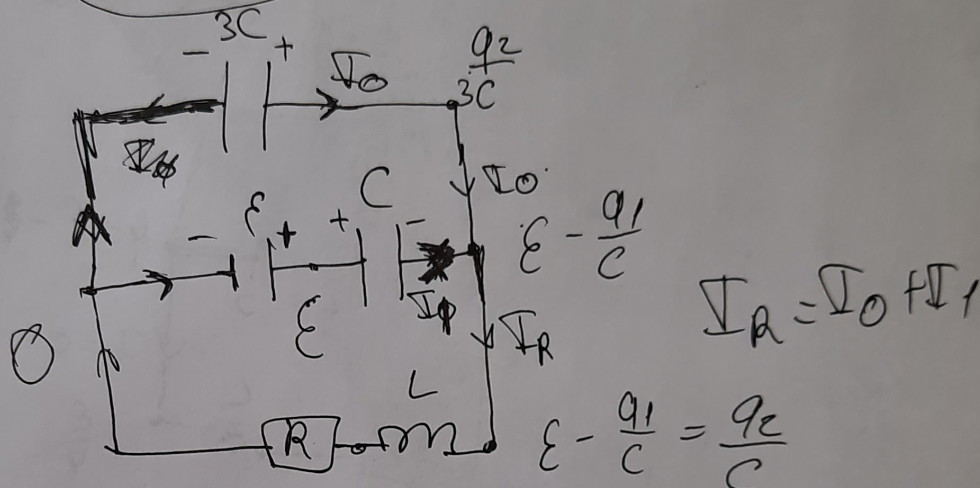 - 3C +
I₀
q₂/3C
I₀
ε
C
- + + -
ε - q₁/C
ε
I_R = I₀ + I₁
I_R
0
L
R
ε - q₁/C = q₂/C